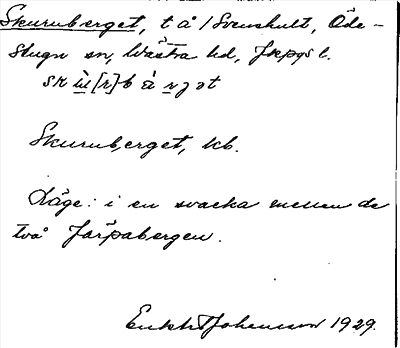 Skuruberget, t å / Svenshult, Öde-
stugu sn, Västra hd, Jkpgs l.
sk ùl[r]b à rjət
Skuruberget, kb.
Läge: i en svacka mellan de
två Järpabergen.
Johansson 1929.